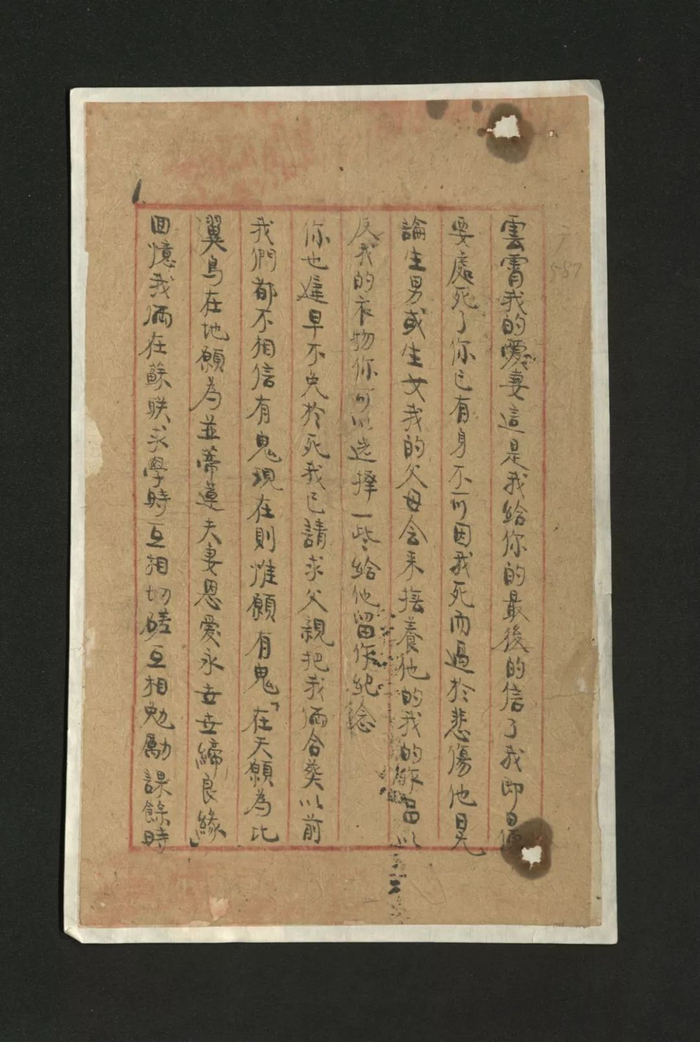 雲霄我的愛妻這是我給你的最後的信了我即日便
要處死了你已有身不可因我死而過於悲傷他日无
論生男或生女我的父母会來撫養他的我的作品以
及我的衣物你可以选择一些給他留作紀念
你也遲早不免於死我已請求父親把我倆合葬以前
我們都不相信有鬼現在則惟願有鬼「在天願為比
翼鳥在地願為並蒂蓮夫妻恩愛永世世締良緣」
回憶我倆在蘇聯求學時互相切磋互相勉勵課餘時
557